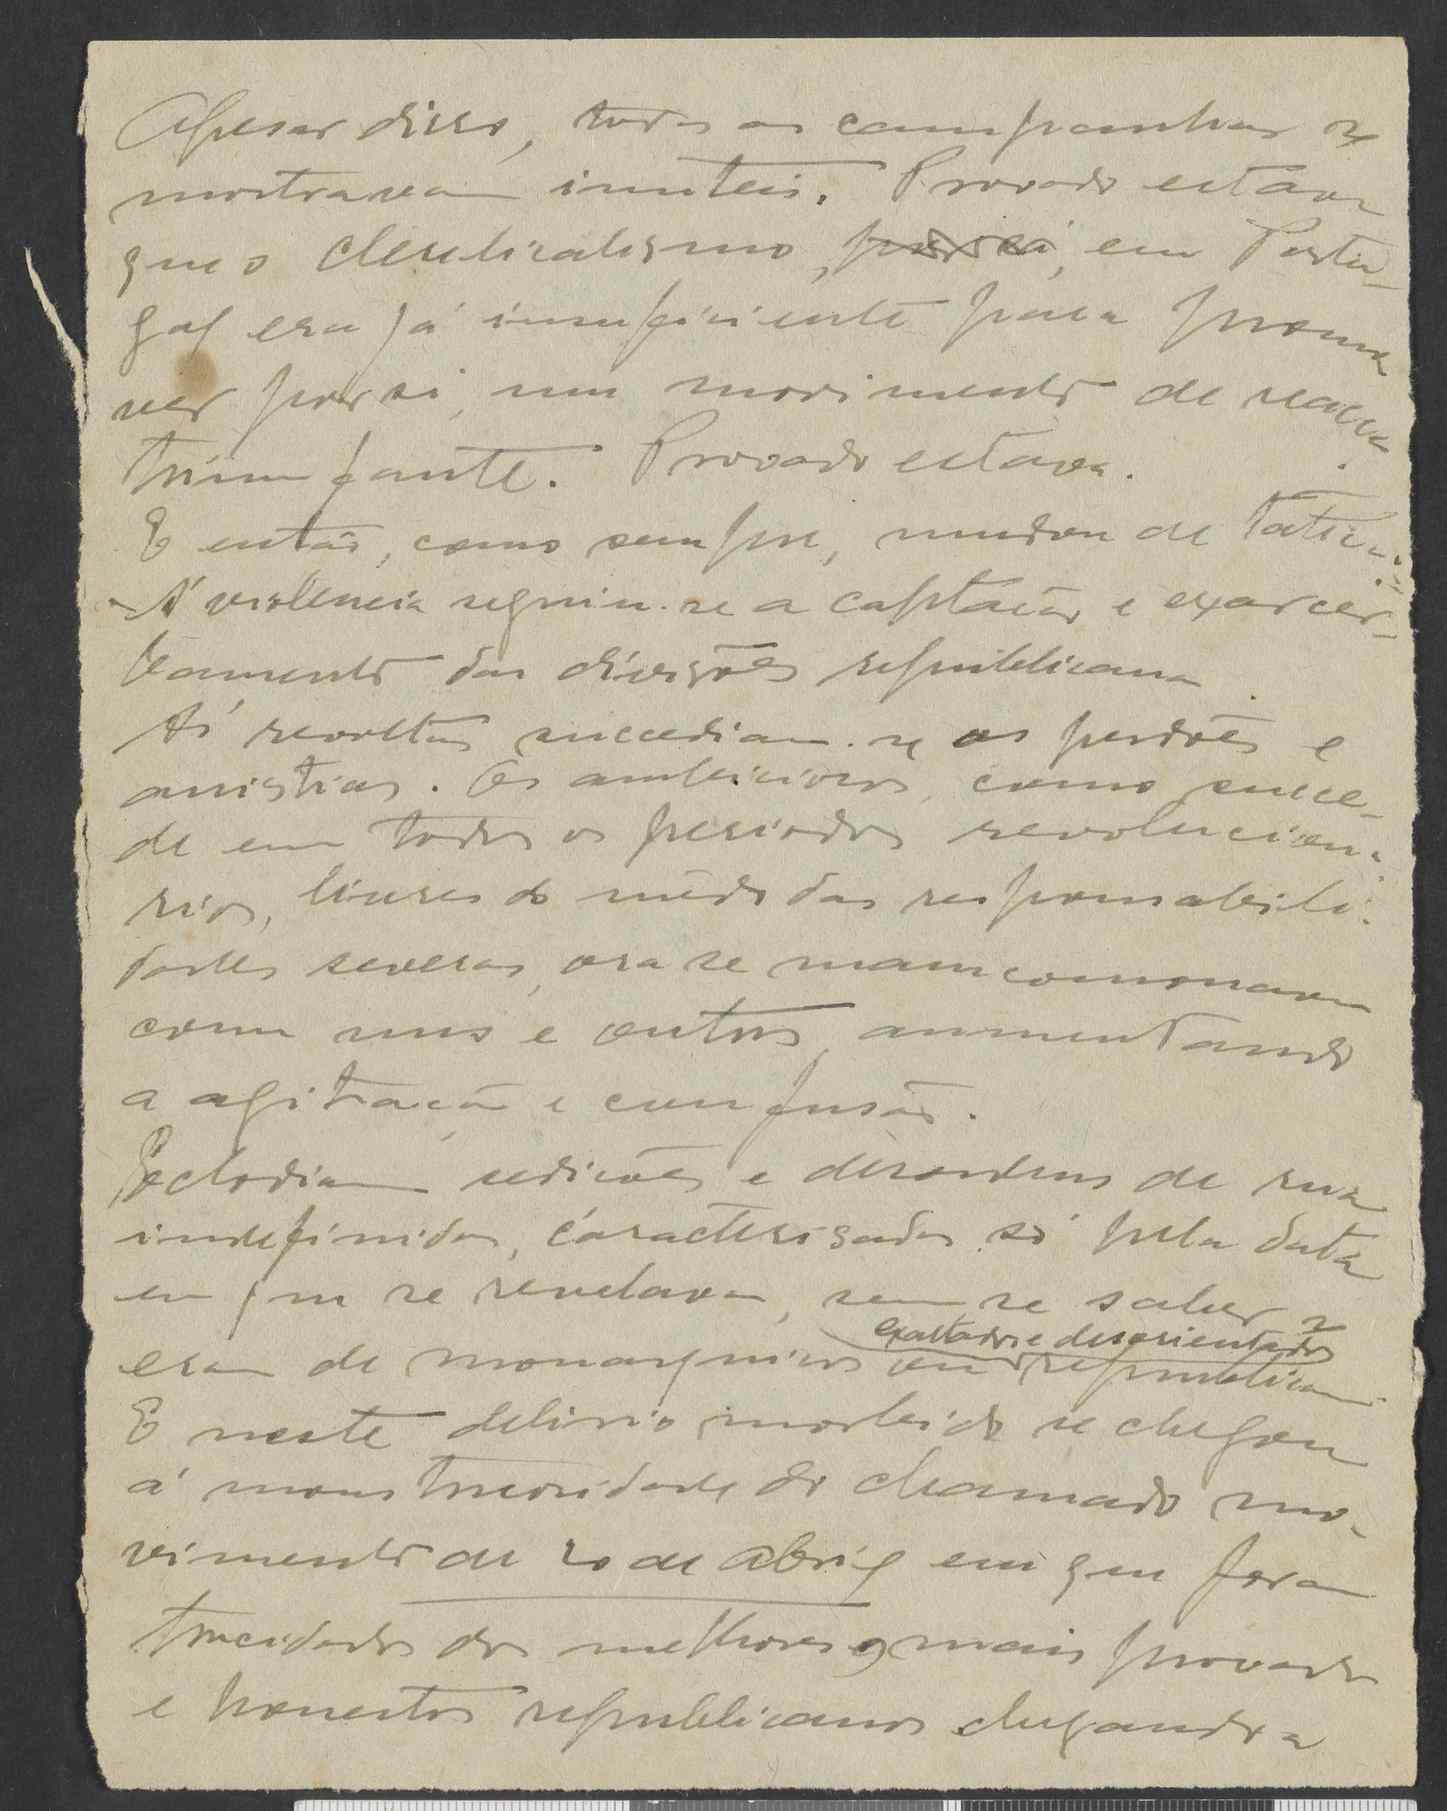 Apesar disso, todas as campanhas se
mostravam inuteis. Provado estava
que o clericalismo, em Portu-
gal era já insuficiente para promo
ver por si, um movimento de reacção
triumfante. Provado estava.
E então, como sempre, mudou de tatica:
A' violencia seguiu-se a captação e
das divisões republicanas
As revoltas succediam-se os perdões e
amistias. Os ambiciosos, como succe-
de em todos os periodos revoluciona-
rios, livres do mêdo das responsabili-
dades severas, ora se mancomonavam
com uns e outros, aumentando
a agitação e confusão.
Eclodiam sedições e desordens de rua
indefinidas, caracterisadas só pela data
em que se revelavam, sem se saber se
exaltados e desorientados
eram de monarquicos ou republicanos.
E neste delirio morbido se chegou
á monstruosidade do chamado mo-
vimento de de Abril em que foram
trucidados dos melhores, mais provados
e honestos republicanos chegando a